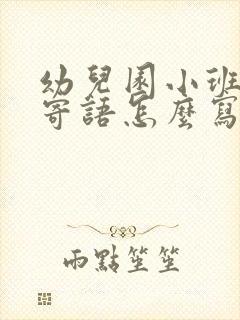 幼兒園小班
寄語怎麼寫
雨點笙笙